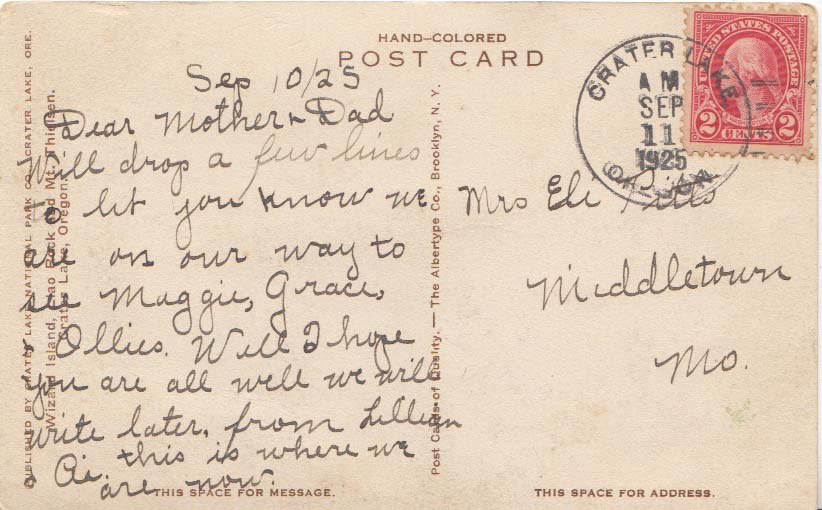 HAND-COLORED
POST CARD
Sep 10/25
Dear Mother & Dad
Will drop a few lines
To let you know we
are on our way to
see Maggie, Grace,
& Ollies. Well I hope
you are all well we will
write later, from Lillian
& Oi, this is where we
are now.
THIS SPACE FOR MESSAGE.
PUBLISHED BY CRATER LAKE NATIONAL PARK CO., CRATER LAKE, ORE.
Wizard Island, Llao Rock and Mt. Thielsen.
Crater Lake, Oregon.
Post Cards of Quality. — The Albertype Co., Brooklyn, N. Y.
UNITED STATES POSTAGE
2 CENTS 2
CRATER LAKE,
A M
SEP
11
1925
Mrs Eli
Middletown
Mo.
THIS SPACE FOR ADDRESS.